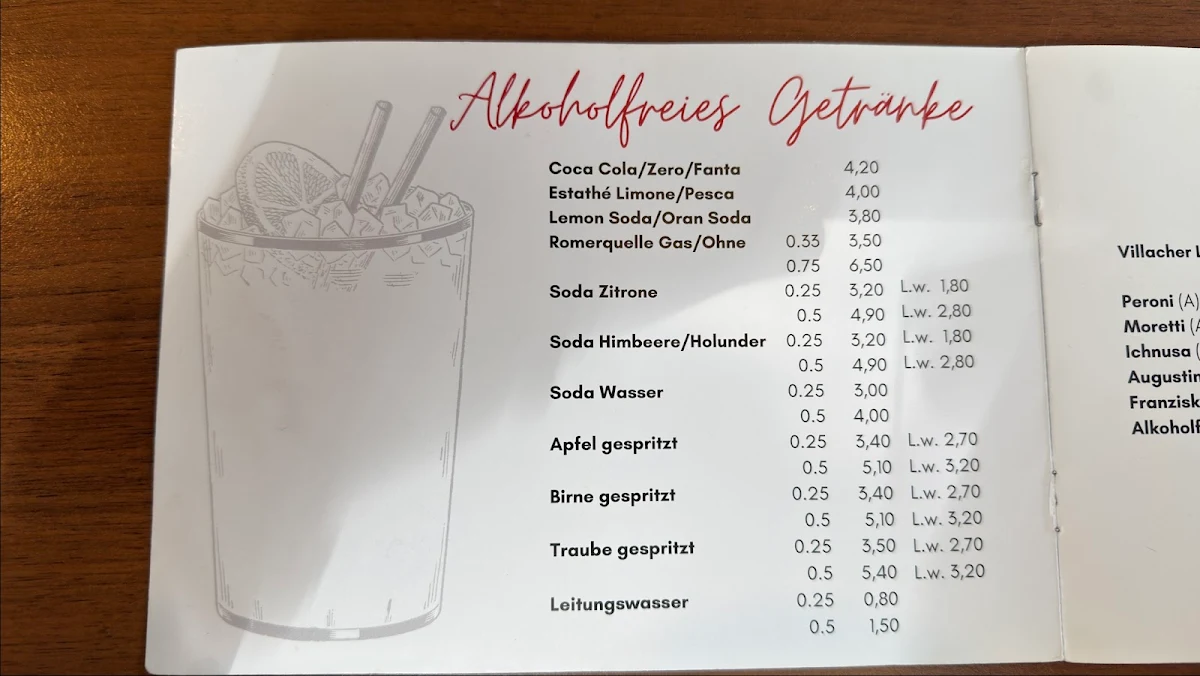 Alkoholfreies Getränke
Coca Cola/Zero/Fanta 4,20
Estathé Limone/Pesca 4,00
Lemon Soda/Oran Soda 3,80
Romerquelle Gas/Ohne 0.33 3,50
0.75 6,50
Soda Zitrone 0.25 3,20 L.w. 1,80
0.5 4,90 L.w. 2,80
Soda Himbeere/Holunder 0.25 3,20 L.w. 1,80
0.5 4,90 L.w. 2,80
Soda Wasser 0.25 3,00
0.5 4,00
Apfel gespritzt 0.25 3,40 L.w. 2,70
0.5 5,10 L.w. 3,20
Birne gespritzt 0.25 3,40 L.w. 2,70
0.5 5,10 L.w. 3,20
Traube gespritzt 0.25 3,50 L.w. 2,70
0.5 5,40 L.w. 3,20
Leitungswasser 0.25 0,80
0.5 1,50
Villacher
Peroni (A)
Moretti
Ichnusa